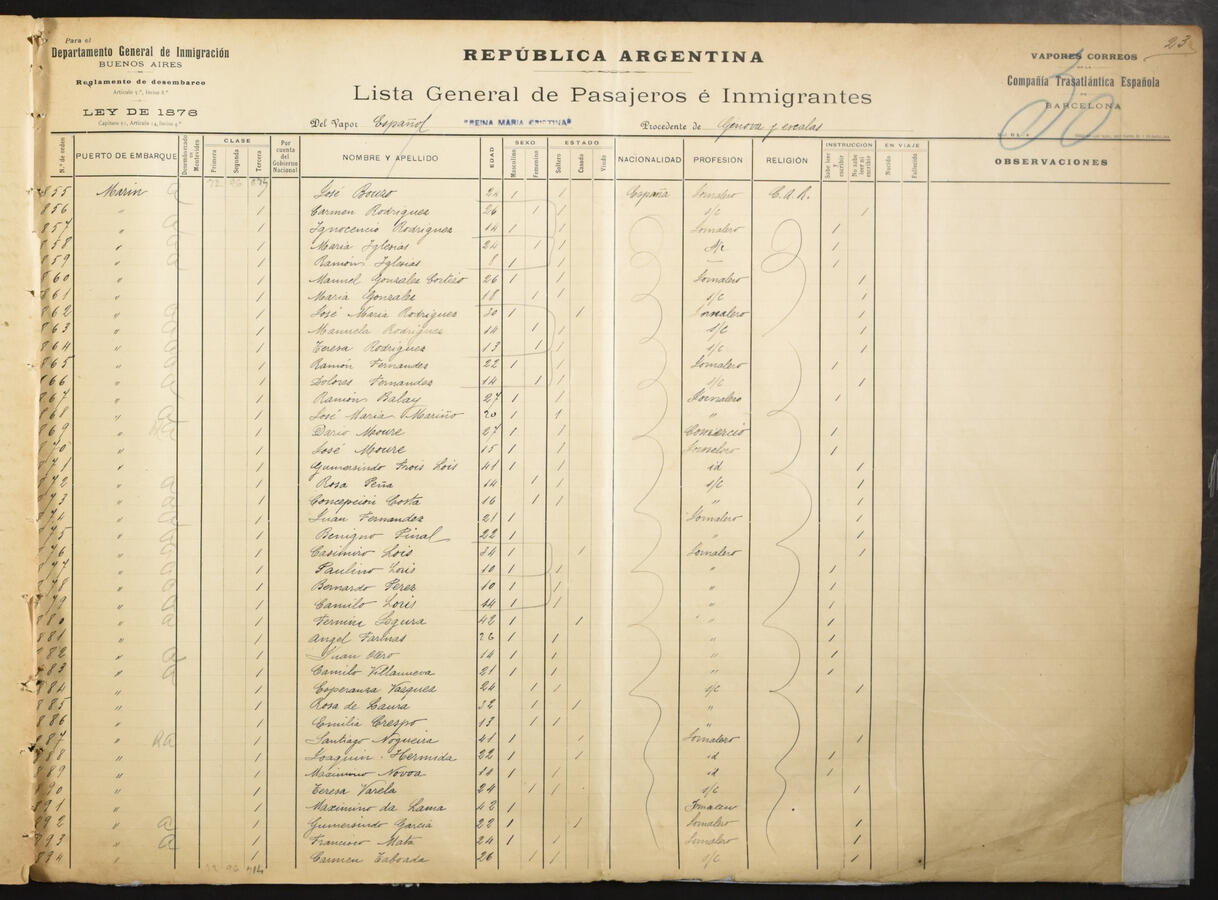 Para el
Departamento General de Inmigración
BUENOS AIRES
Reglamento de desembarco
Artículo 5.º, Inciso 8.º
LEY DE 1876
Capítulo 12, Artículo 14, Inciso 4.º
REPÚBLICA ARGENTINA
Lista General de Pasajeros é Inmigrantes
Del Vapor Español "REINA MARIA CRISTINA" Procedente de Genova y escalas
23
VAPORES CORREOS
DE LA
Compañía Trasatlántica Española
DE
BARCELONA
N.º de orden PUERTO DE EMBARQUE Desembarcado en Montevideo CLASE Primera Segunda Tercera Por cuenta del Gobierno Nacional NOMBRE Y APELLIDO EDAD SEXO Masculino Femenino ESTADO Soltero Casado Viudo NACIONALIDAD PROFESIÓN RELIGIÓN INSTRUCCIÓN Sabe leer y escribir No sabe leer ni escribir EN VIAJE Nacido Fallecido OBSERVACIONES
855 Marin / José Bouro 24 / / España Jornalero C.A.R. /
856 " / Carmen Rodriguez 26 / / s/c /
857 " / Ignocencio Rodriguez 14 / / Jornalero /
858 " / Maria Iglesias 24 / / s/c /
859 " / Ramón Iglesias 8 / / — /
860 " / Manuel Gonzalez Cortizo 26 / / Jornalero /
861 " / Maria Gonzalez 18 / / s/c /
862 " / José Maria Rodriguez 30 / / Jornalero /
863 " / Manuela Rodriguez 14 / / s/c /
864 " / Teresa Rodriguez 13 / / s/c /
865 " / Ramón Fernandez 22 / / Jornalero /
866 " / Dolores Fernandez 14 / / s/c /
867 " / Ramón Balay 27 / / Jornalero /
868 " / José Maria Mariño 20 / / "
869 " / Dario Moure 27 / / Comercio /
870 " / José Moure 15 / / Jornalero /
871 " / Gumersindo Lois 41 / / id /
872 " / Rosa Peña 14 / / s/c /
873 " / Concepcion Costa 16 / / " /
874 " / Juan Fernandez 21 / Jornalero /
875 " / Benigno Pinal 22 / " /
876 " / Casimiro Lois 34 / / Jornalero /
877 " / Paulino Lois 10 / / " /
878 " / Bernardo Perez 10 / / " /
879 " / Camilo Lois 14 / / " /
880 " / Segura 42 / / " /
881 " / Angel Fariñas 26 / / " /
882 " / Juan Otero 14 / / " /
883 " / Camilo Villanueva 21 / / " /
884 " / Esperanza Vasquez 24 / / s/c /
885 " / Rosa de Laura 32 / / "
886 " / Emilia Crespo 13 / / "
887 " / Santiago Nogueira 41 / / Jornalero /
888 " / Joaquin Hermida 22 / / id /
889 " / Maximino Novoa / / id /
890 " / Teresa Varela 24 / / s/c /
891 " / Maximino da Lama 42 / Jornalero /
892 " / Gumersindo Garcia 22 / / Jornalero /
893 " / Francisco Mata 24 / / Jornalero /
894 " / Carmen Taboada 26 / / s/c /